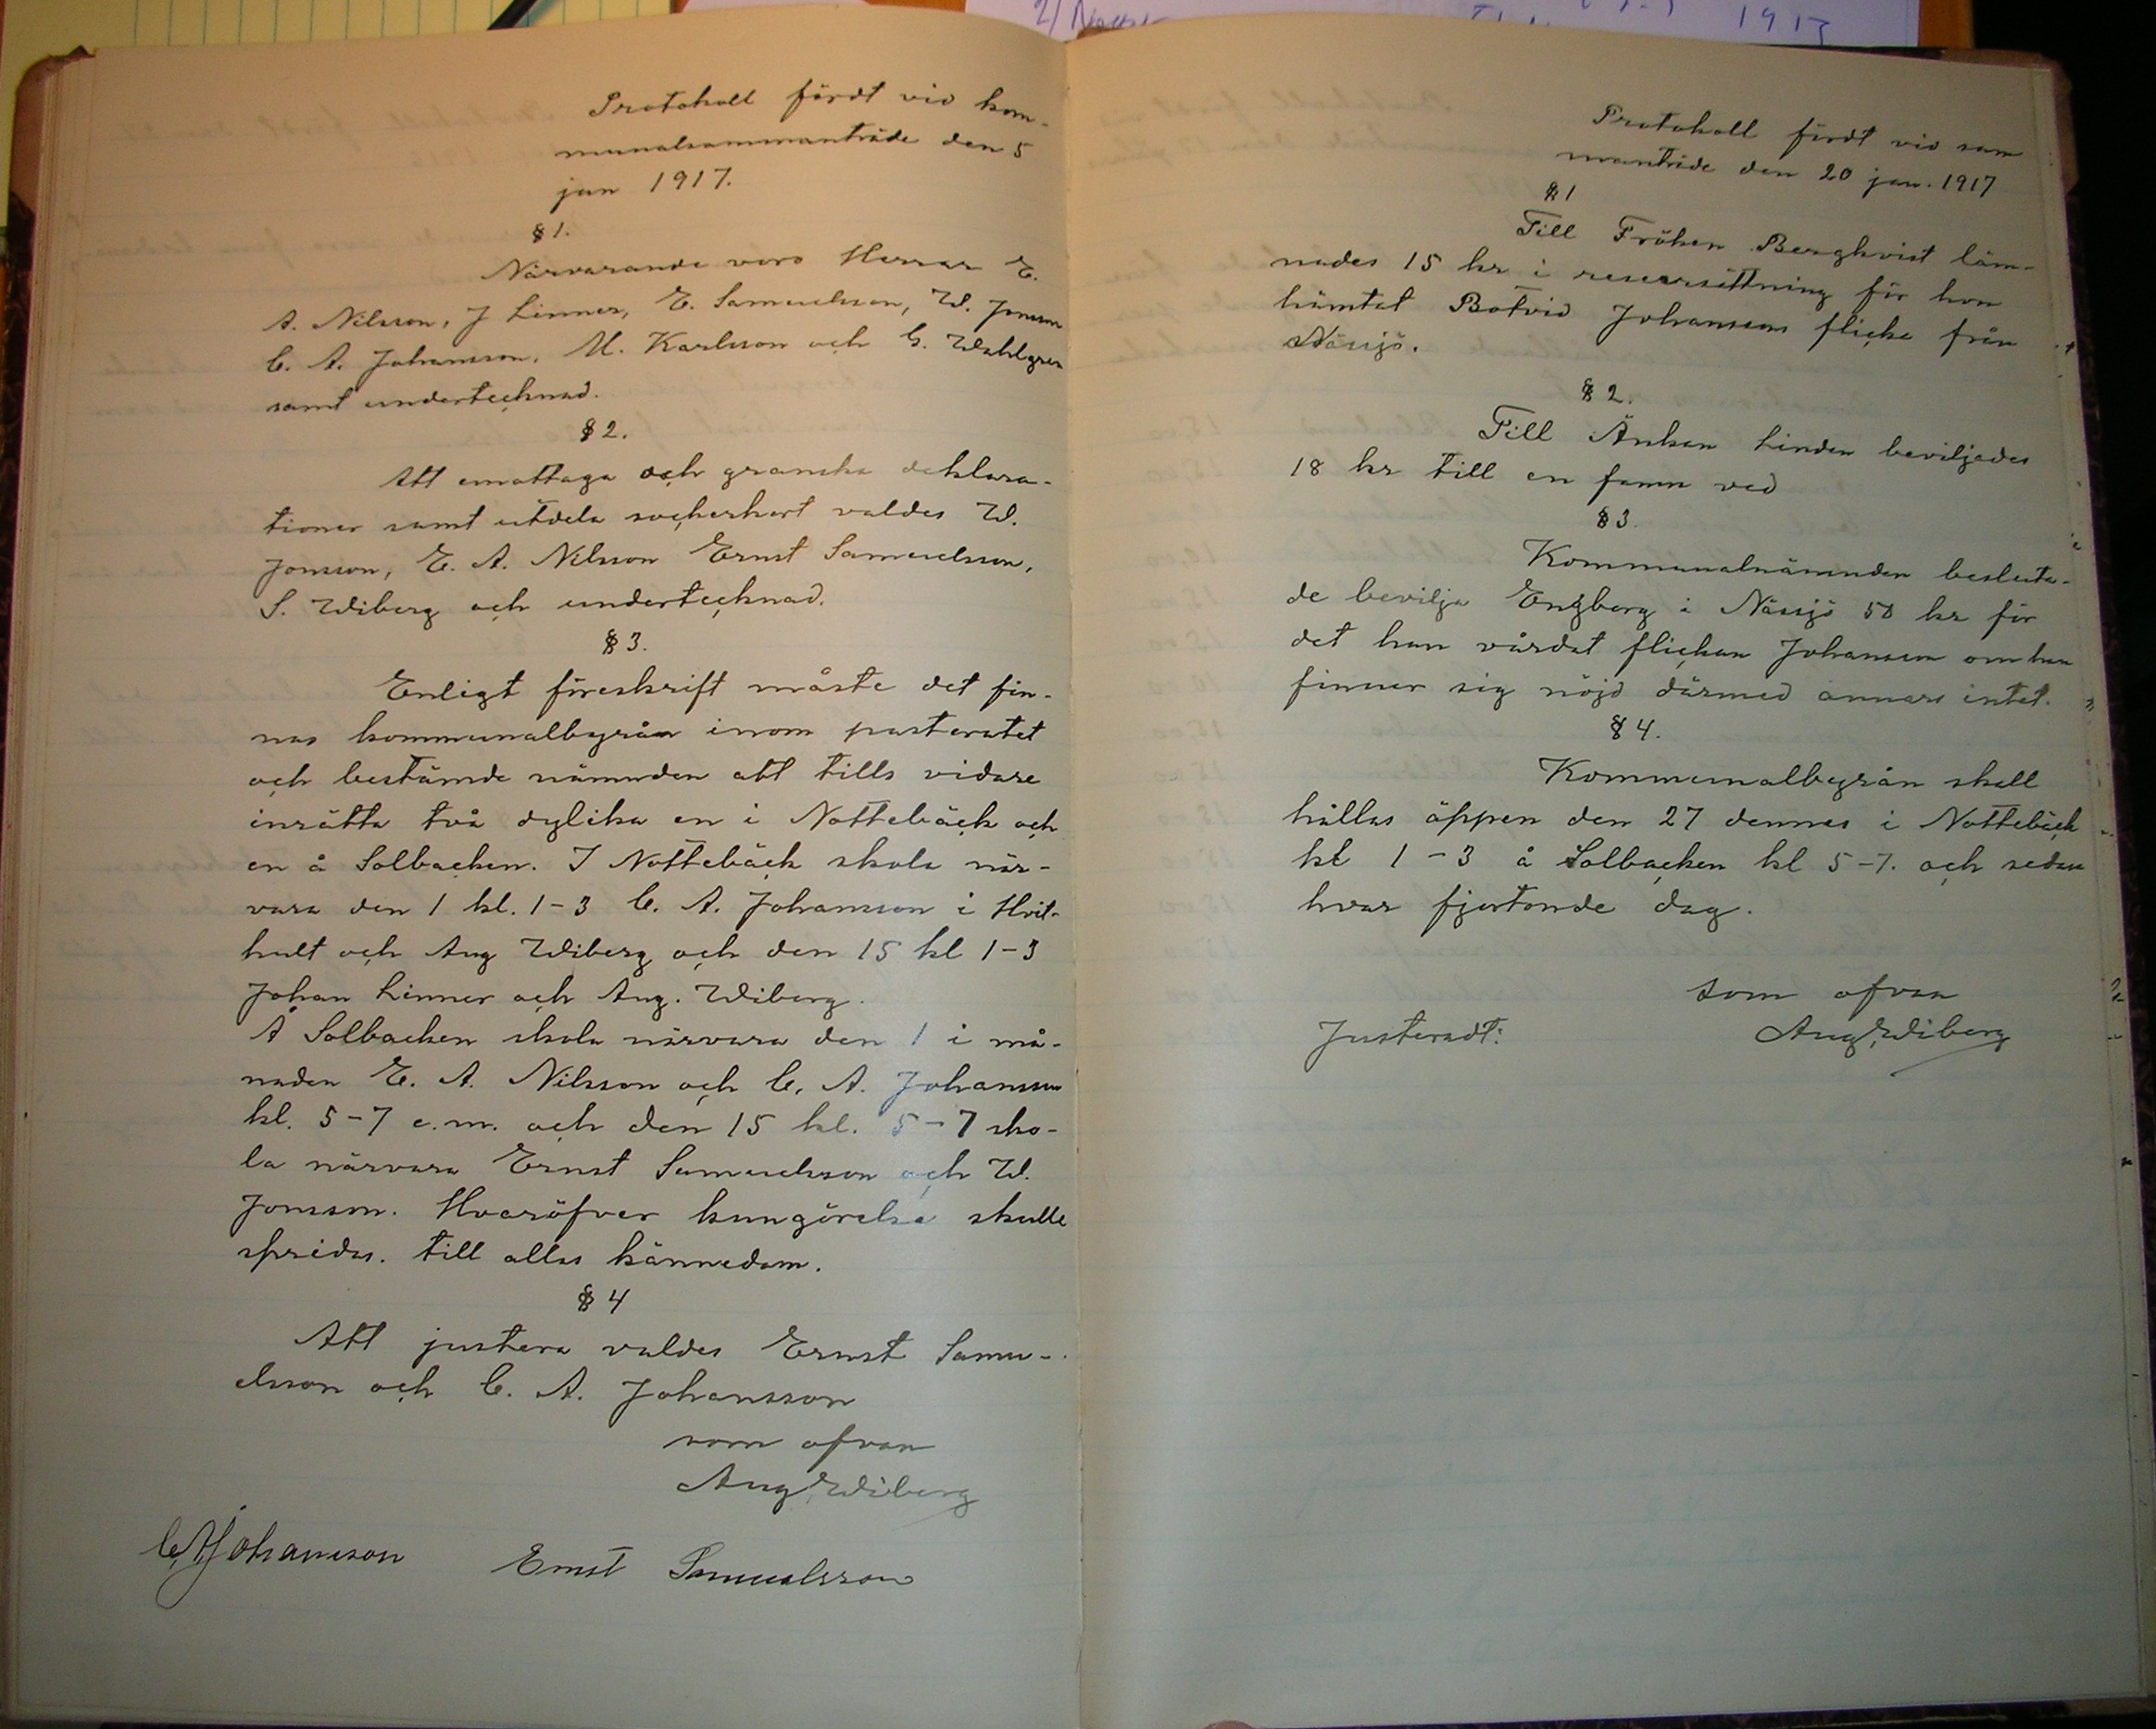 Protokoll fördt vid kom-
munalsammanträde den 5
jan 1917.
§ 1.
Närvarande voro Herrar E.
A. Nilsson, J Linner, E. Samuelsson, W. Jonsson
C. A. Johansson, M. Karlsson och G. Wahlgren
samt undertecknad.
§ 2.
Att emottaga och granska deklara-
tioner samt utdela sockerkort valdes W.
Jonsson, E. A. Nilsson Ernst Samuelsson,
S. Wiberg och undertecknad.
§ 3.
Enligt föreskrift måste det fin-
nas kommunalbyrån inom pastoratet
och bestämde nämnden att tills vidare
inrätta två dylika en i Nottebäck och
en å Solbacken. I Nottebäck skola när-
vara den 1 kl. 1-3 C. A. Johansson i Hvit-
hult och Aug Wiberg och den 15 kl 1-3
Johan Linner och Aug. Wiberg.
Å Solbacken skola närvara den 1 i må-
naden E. A. Nilsson och C. A. Johansson
kl. 5-7 e.m. och den 15 kl. 5-7 sko-
la närvara Ernst Samuelsson och W.
Jonsson. Hvaröfver kungörelse skulle
spridas. till allas kännedom.
§ 4
Att justera valdes Ernst Samu-
elsson och C. A. Johansson
som ofvan
Aug Wiberg
C. A. Johansson Ernst Samuelsson
1917
Protokoll fördt vid sam
manträde den 20 jan. 1917
§ 1
Till Fröken Bergkvist läm-
nades 15 kr i reseersättning för hon
hämtat Botvid Johanssons flicka från
Nässjö.
§ 2.
Till Änkan Lindén beviljades
18 kr till en famn ved
§ 3.
Kommunalnämnden besluta-
de bevilja Engberg i Nässjö 50 kr för
det han vårdat flickan Johansson om han
finner sig nöjd därmed annars intet.
§ 4.
Kommunalbyrån skall
hållas öppen den 27 dennes i Nottebäck
kl 1-3 å Solbacken kl 5-7. och sedan
hvar fjortonde dag.
som ofvan
Justeradt: Aug Wiberg